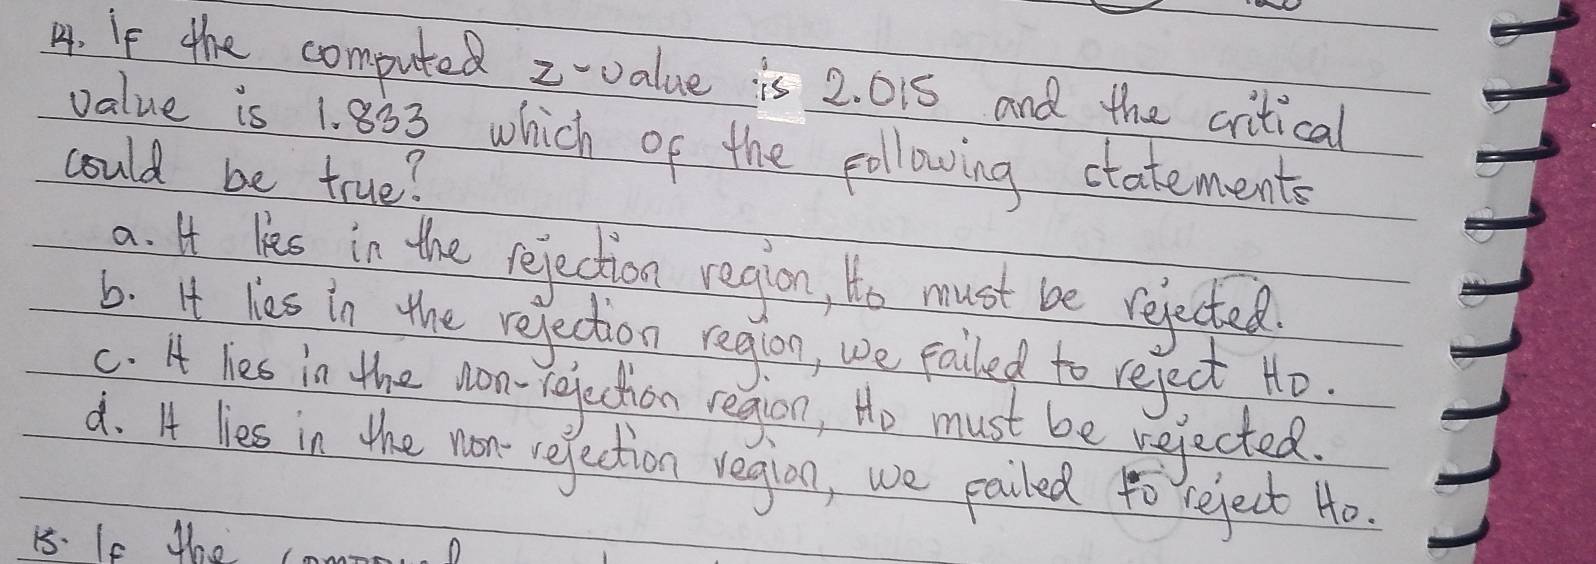 14. If the computed z-value is 2.015 and the critical
value is 1.833 which of the following statements
could be true?
a. It lies in the rejection region, Ho must be rejected.
b. It lies in the rejection region, we failed to reject Ho.
c. It lies in the non-rejection region, Ho must be rejected.
d. It lies in the non-rejection region, we failed to reject Ho.
15. If the